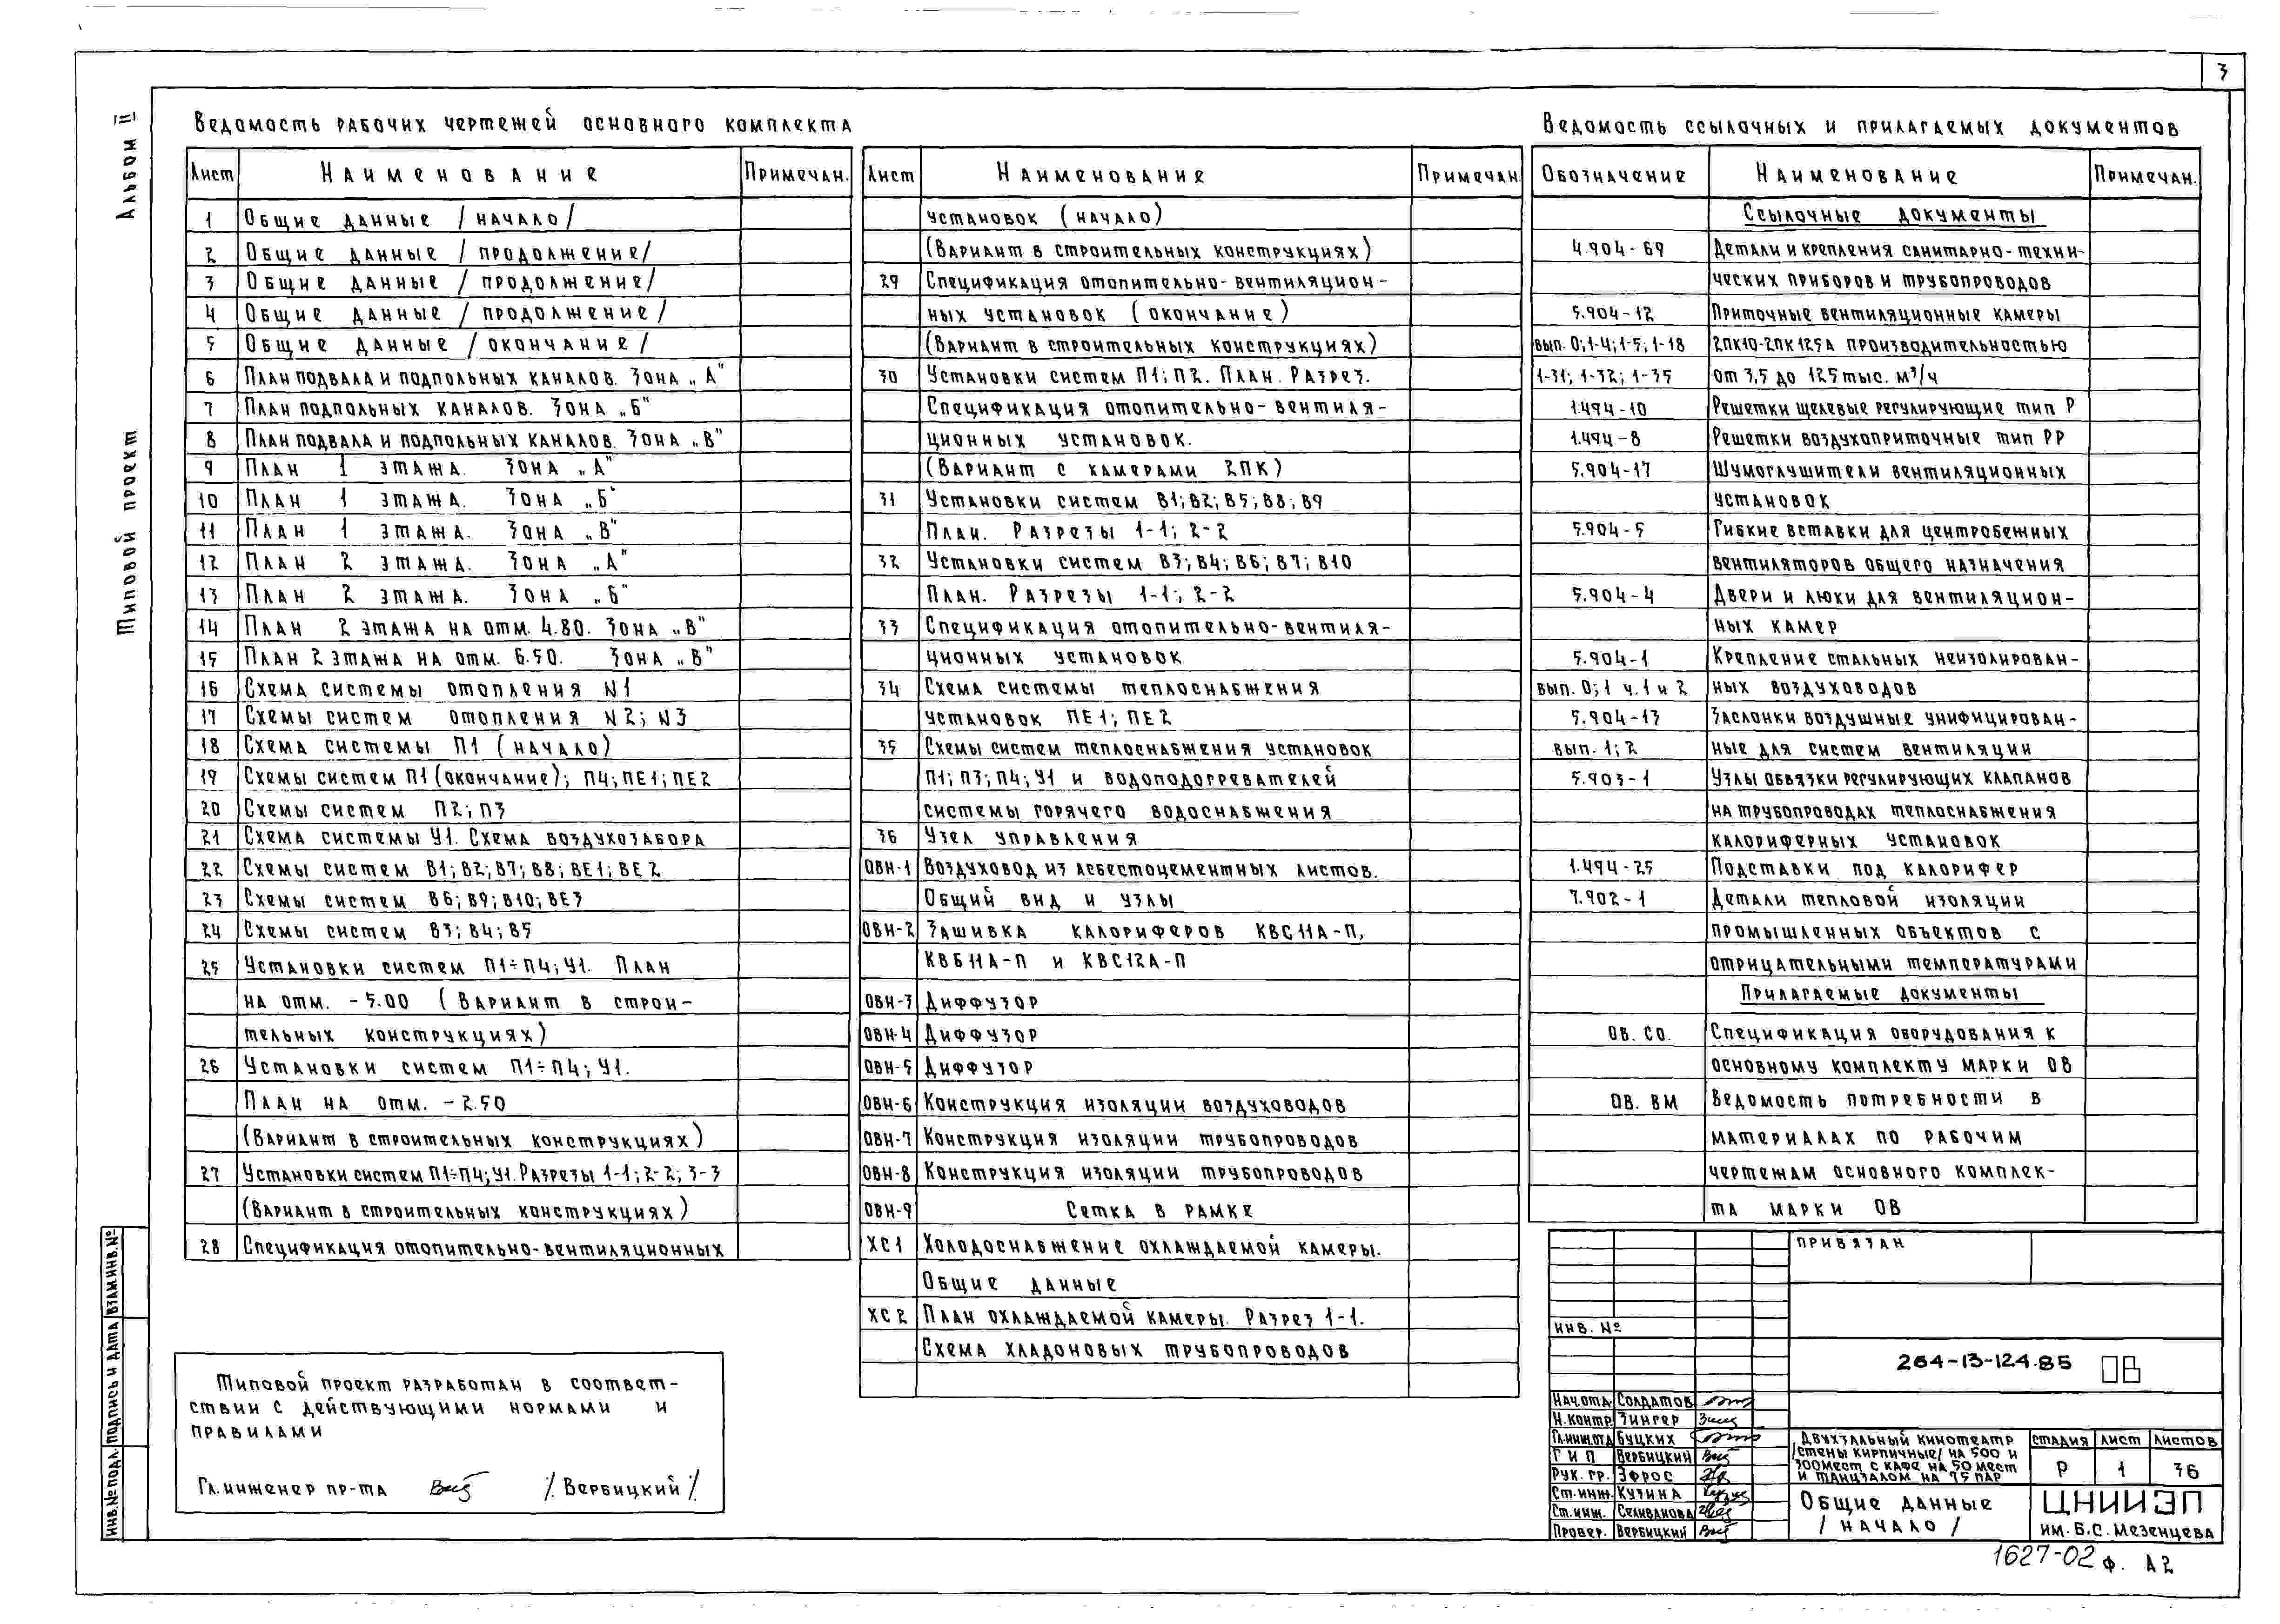 3
Альбом II
Типовой проект
Ведомость рабочих чертежей основного комплекта
Лист Наименование Примечан.
1 Общие данные /начало/
2 Общие данные /продолжение/
3 Общие данные /продолжение/
4 Общие данные /продолжение/
5 Общие данные /окончание/
6 План подвала и подпольных каналов. Зона „А"
7 План подпольных каналов. Зона „Б"
8 План подвала и подпольных каналов. Зона „В"
9 План 1 этажа. Зона „А"
10 План 1 этажа. Зона „Б"
11 План 1 этажа. Зона „В"
12 План 2 этажа. Зона „А"
13 План 2 этажа. Зона „Б"
14 План 2 этажа на отм. 4.80. Зона „В"
15 План 2 этажа на отм. 6.50. Зона „В"
16 Схема системы отопления N1
17 Схемы систем отопления N2; N3
18 Схема системы П1 (начало)
19 Схемы систем П1 (окончание); П4; ПЕ1; ПЕ2
20 Схемы систем П2; П3
21 Схема системы У1. Схема воздухозабора
22 Схемы систем В1; В2; В7; В8; ВЕ1; ВЕ2
23 Схемы систем В6; В9; В10; ВЕ3
24 Схемы систем В3; В4; В5
25 Установки систем П1÷П4; У1. План
на отм. -5.00 (Вариант в строи-
тельных конструкциях)
26 Установки систем П1÷П4; У1.
План на отм. -2.50
(Вариант в строительных конструкциях)
27 Установки систем П1÷П4; У1. Разрезы 1-1; 2-2; 3-3
(Вариант в строительных конструкциях)
28 Спецификация отопительно-вентиляционных
Лист Наименование Примечан.
установок (начало)
(Вариант в строительных конструкциях)
29 Спецификация отопительно-вентиляцион-
ных установок (окончание)
(Вариант в строительных конструкциях)
30 Установки систем П1; П2. План. Разрез.
Спецификация отопительно-вентиля-
ционных установок.
(Вариант с камерами 2ПК)
31 Установки систем В1; В2; В5; В8; В9
План. Разрезы 1-1; 2-2
32 Установки систем В3; В4; В6; В7; В10
План. Разрезы 1-1; 2-2
33 Спецификация отопительно-вентиля-
ционных установок
34 Схема системы теплоснабжения
установок ПЕ1; ПЕ2
35 Схемы систем теплоснабжения установок
П1; П3; П4; У1 и водоподогревателей
системы горячего водоснабжения
36 Узел управления
ОВН-1 Воздуховод из асбестоцементных листов.
Общий вид и узлы
ОВН-2 Зашивка калориферов КВС11А-П,
КВБ11А-П и КВС12А-П
ОВН-3 Диффузор
ОВН-4 Диффузор
ОВН-5 Диффузор
ОВН-6 Конструкция изоляции воздуховодов
ОВН-7 Конструкция изоляции трубопроводов
ОВН-8 Конструкция изоляции трубопроводов
ОВН-9 Сетка в рамке
ХС1 Холодоснабжение охлаждаемой камеры.
Общие данные
ХС2 План охлаждаемой камеры. Разрез 1-1.
Схема хладоновых трубопроводов
Ведомость ссылочных и прилагаемых документов
Обозначение Наименование Примечан.
Ссылочные документы
4.904-69 Детали и крепления санитарно-техни-
ческих приборов и трубопроводов
5.904-12 Приточные вентиляционные камеры
вып. 0; 1-4; 1-5; 1-18 2ПК10-2ПК125А производительностью
1-31; 1-32; 1-35 от 3,5 до 125 тыс. м³/ч
1.494-10 Решетки щелевые регулирующие тип Р
1.494-8 Решетки воздухоприточные тип РР
5.904-17 Шумоглушители вентиляционных
установок
5.904-5 Гибкие вставки для центробежных
вентиляторов общего назначения
5.904-4 Двери и люки для вентиляцион-
ных камер
5.904-1 Крепление стальных неизолирован-
вып. 0; 1 ч.1 и 2 ных воздуховодов
5.904-13 Заслонки воздушные унифицирован-
вып. 1; 2 ные для систем вентиляции
5.903-1 Узлы обвязки регулирующих клапанов
на трубопроводах теплоснабжения
калориферных установок
1.494-25 Подставки под калорифер
7.902-1 Детали тепловой изоляции
промышленных объектов с
отрицательными температурами
Прилагаемые документы
ОВ. СО. Спецификация оборудования к
основному комплекту марки ОВ
ОВ. ВМ Ведомость потребности в
материалах по рабочим
чертежам основного комплек-
та марки ОВ
Типовой проект разработан в соответ-
ствии с действующими нормами и
правилами
Гл. инженер пр-та /Вербицкий/
Инв. № подл. Подпись и дата Взам инв. №
Привязан
Инв. №
264-13-124.85 ОВ
Нач. отд. Солдатов
Н. контр. Зингер
Гл. инж. отд. Буцких
ГИП Вербицкий
Рук. гр. Эфрос
Ст. инж. Кузина
Ст. инж. Селиванова
Провер. Вербицкий
Двухзальный кинотеатр
/стены кирпичные/ на 500 и
300 мест с кафе на 50 мест
и танцзалом на 75 пар
Стадия Лист Листов
Р 1 36
Общие данные
/начало/
ЦНИИЭП
им. Б.С. Мезенцева
1627-02 ф. А2